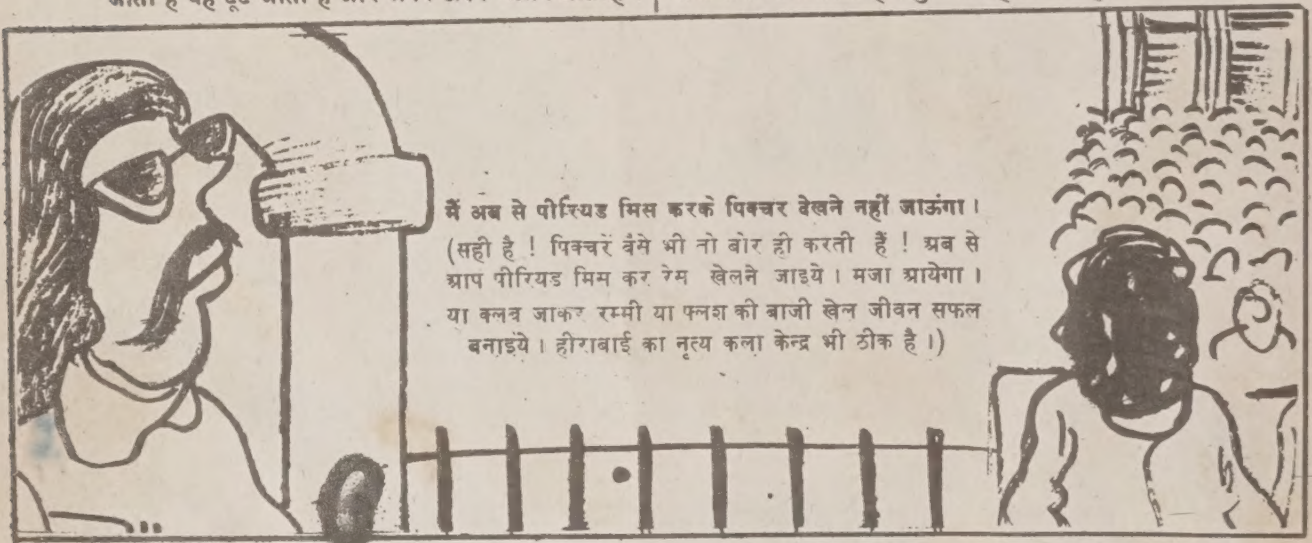 जाता है वह टूट जाता है और
मैं अब से पीरियड मिस करके पिक्चर देखने नहीं जाऊंगा ।
(सही है ! पिक्चरें वैसे भी तो बोर ही करती हैं ! अब से
आप पीरियड मिस कर रेम खेलने जाइये । मजा आयेगा ।
या क्लब जाकर रम्मी या फ्लश की बाजी खेल जीवन सफल
बनाइये । हीराबाई का नृत्य कला केन्द्र भी ठीक है ।)